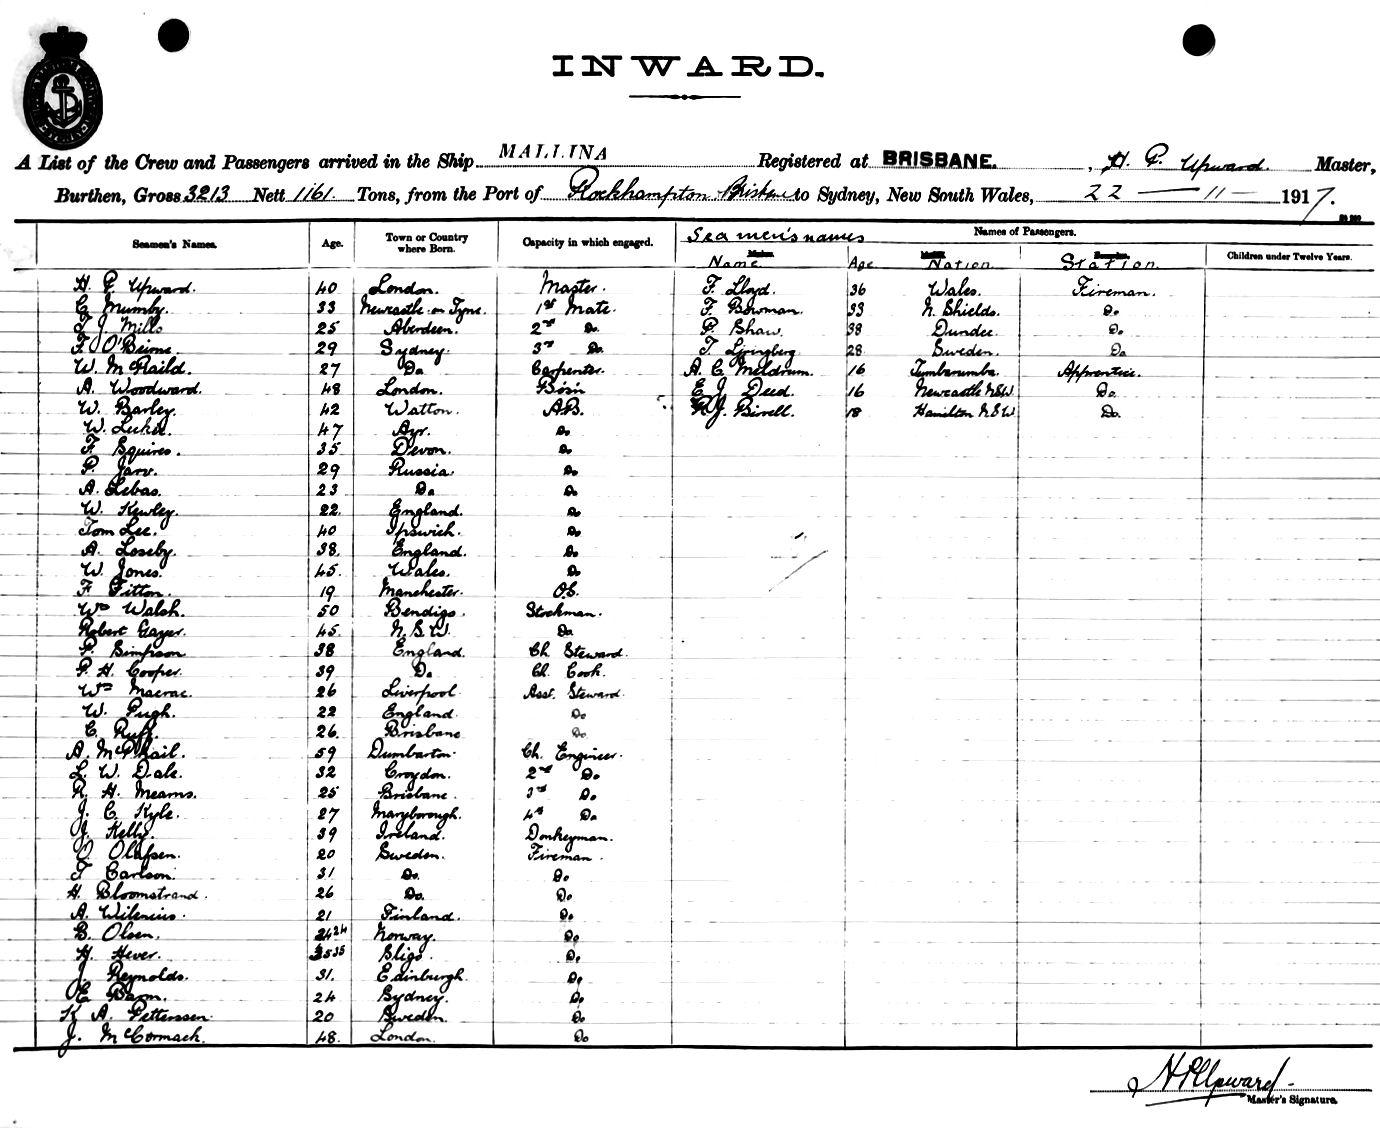 INWARD.
A List of the Crew and Passengers arrived in the Ship MALLINA Registered at BRISBANE. , H. P. Upward. Master,
Burthen, Gross 3213 Nett 1161. Tons, from the Port of Rockhampton Brisbane to Sydney, New South Wales, 22 — 11 — 1917.
Seamen's Names. Age. Town or Country where Born. Capacity in which engaged. Seamen's names Names of Passengers. Children under Twelve Years.
Name Age Nation Station
H. P. Upward. 40 London. Master. F. Lloyd. 36 Wales. Fireman.
C. Mumby. 33 Newcastle on Tyne. 1st Mate. F. Bowman. 33 N. Shields. Do
T. J. Mills 25 Aberdeen. 2nd Do. P. Shaw. 38 Dundee. Do
F. O'Beirne 29 Sydney. 3rd Do. T. Ljungberg. 28 Sweden. Do
W. McPhaild. 27 Do Carpenter. A. C. Meldrum. 16 Tumbarumba. Apprentice.
A. Woodward. 48 London. Bos'n E. J. Deed. 16 Newcastle NSW. Do.
W. Barley. 42 Watton. A.B. J. Birell. 18 Hamilton N.S.W. Do.
W. 47 Ayr. Do
F. Squires. 35 Devon. Do
P. Jarv. 29 Russia. Do
A. Lebas. 23 Do Do
W. Kewley. 22. England. Do
Tom Lee. 40 Ipswich. Do
A. Loseby. 38. England. Do
W. Jones. 45. Wales. Do
F. Fitton. 19 Manchester. O.S.
Wm Walsh. 50 Bendigo. Stockman.
Robert Gayer. 45. N.S.W. Do
P. Simpson 38 England. Ch. Steward.
P. H. Cooper. 39 Do. Ch. Cook.
Wm Macrae. 26 Liverpool Asst. Steward.
W. Pugh. 22 England. Do
C. Ruff. 26. Brisbane Do
A. McPhail. 59 Dumbarton. Ch. Engineer.
L. W. Dale. 32 Croydon. 2nd Do
R. H. Mearns. 25 Brisbane. 3rd Do
J. C. Kyle. 27 Maryborough. 4th Do
J. Kelly. 39 Ireland. Donkeyman.
O. Olafsen. 20 Sweden. Fireman.
T. Carlson. 31 Do. Do
H. Bloomstrand. 26 Do. Do
A. Wilenius. 21 Finland. Do
B. Olsen. 24 Norway. Do
H. Hever. 35 Sligo. Do
J. Reynolds. 31. Edinburgh. Do
E. 24 Sydney. Do
K. A. Petterssen 20 Sweden. Do
J. McCormack. 48. London. Do
H P Upward
Master's Signature.